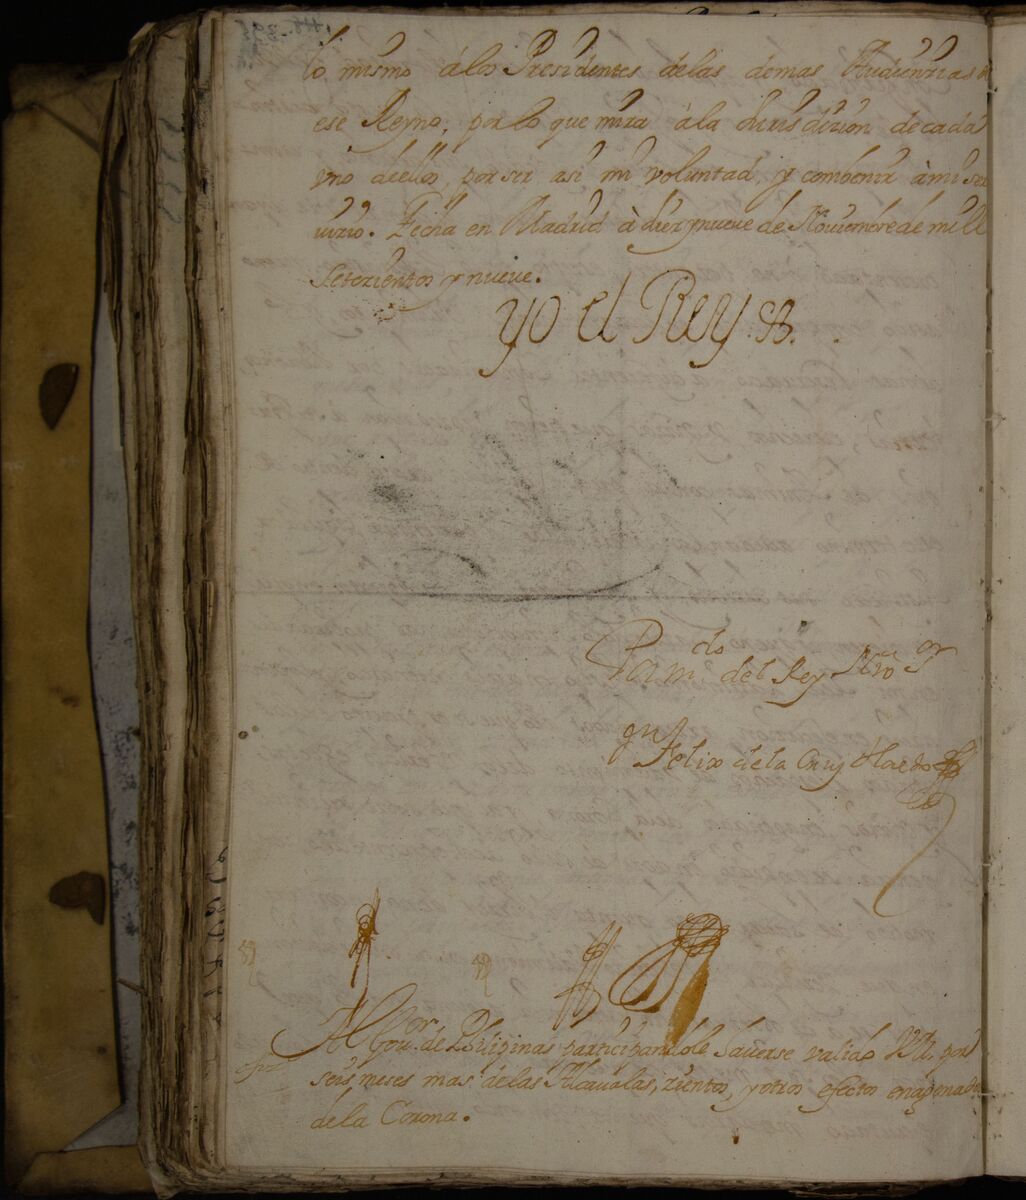 lo mismo álos Presidentes delas demas Audienzias de
ese Reyno, por lo que mira à la Jurisdizion de cada
vno dellos, por ser asi mi voluntad, y combenir à mi ser
uizio. Fecha en Madrid à diez y nueue de Nouiembre de mill
setezientos y nueue.
Yo el Rey
Por mdo. del Rey Nro Sr
Felix de la Cruz Haedo
Al Gor. de Philipinas participandole hauerse valido VM. por
seis meses mas delas Alcaualas, zientos, y otros efectos enagenados
de la Corona.